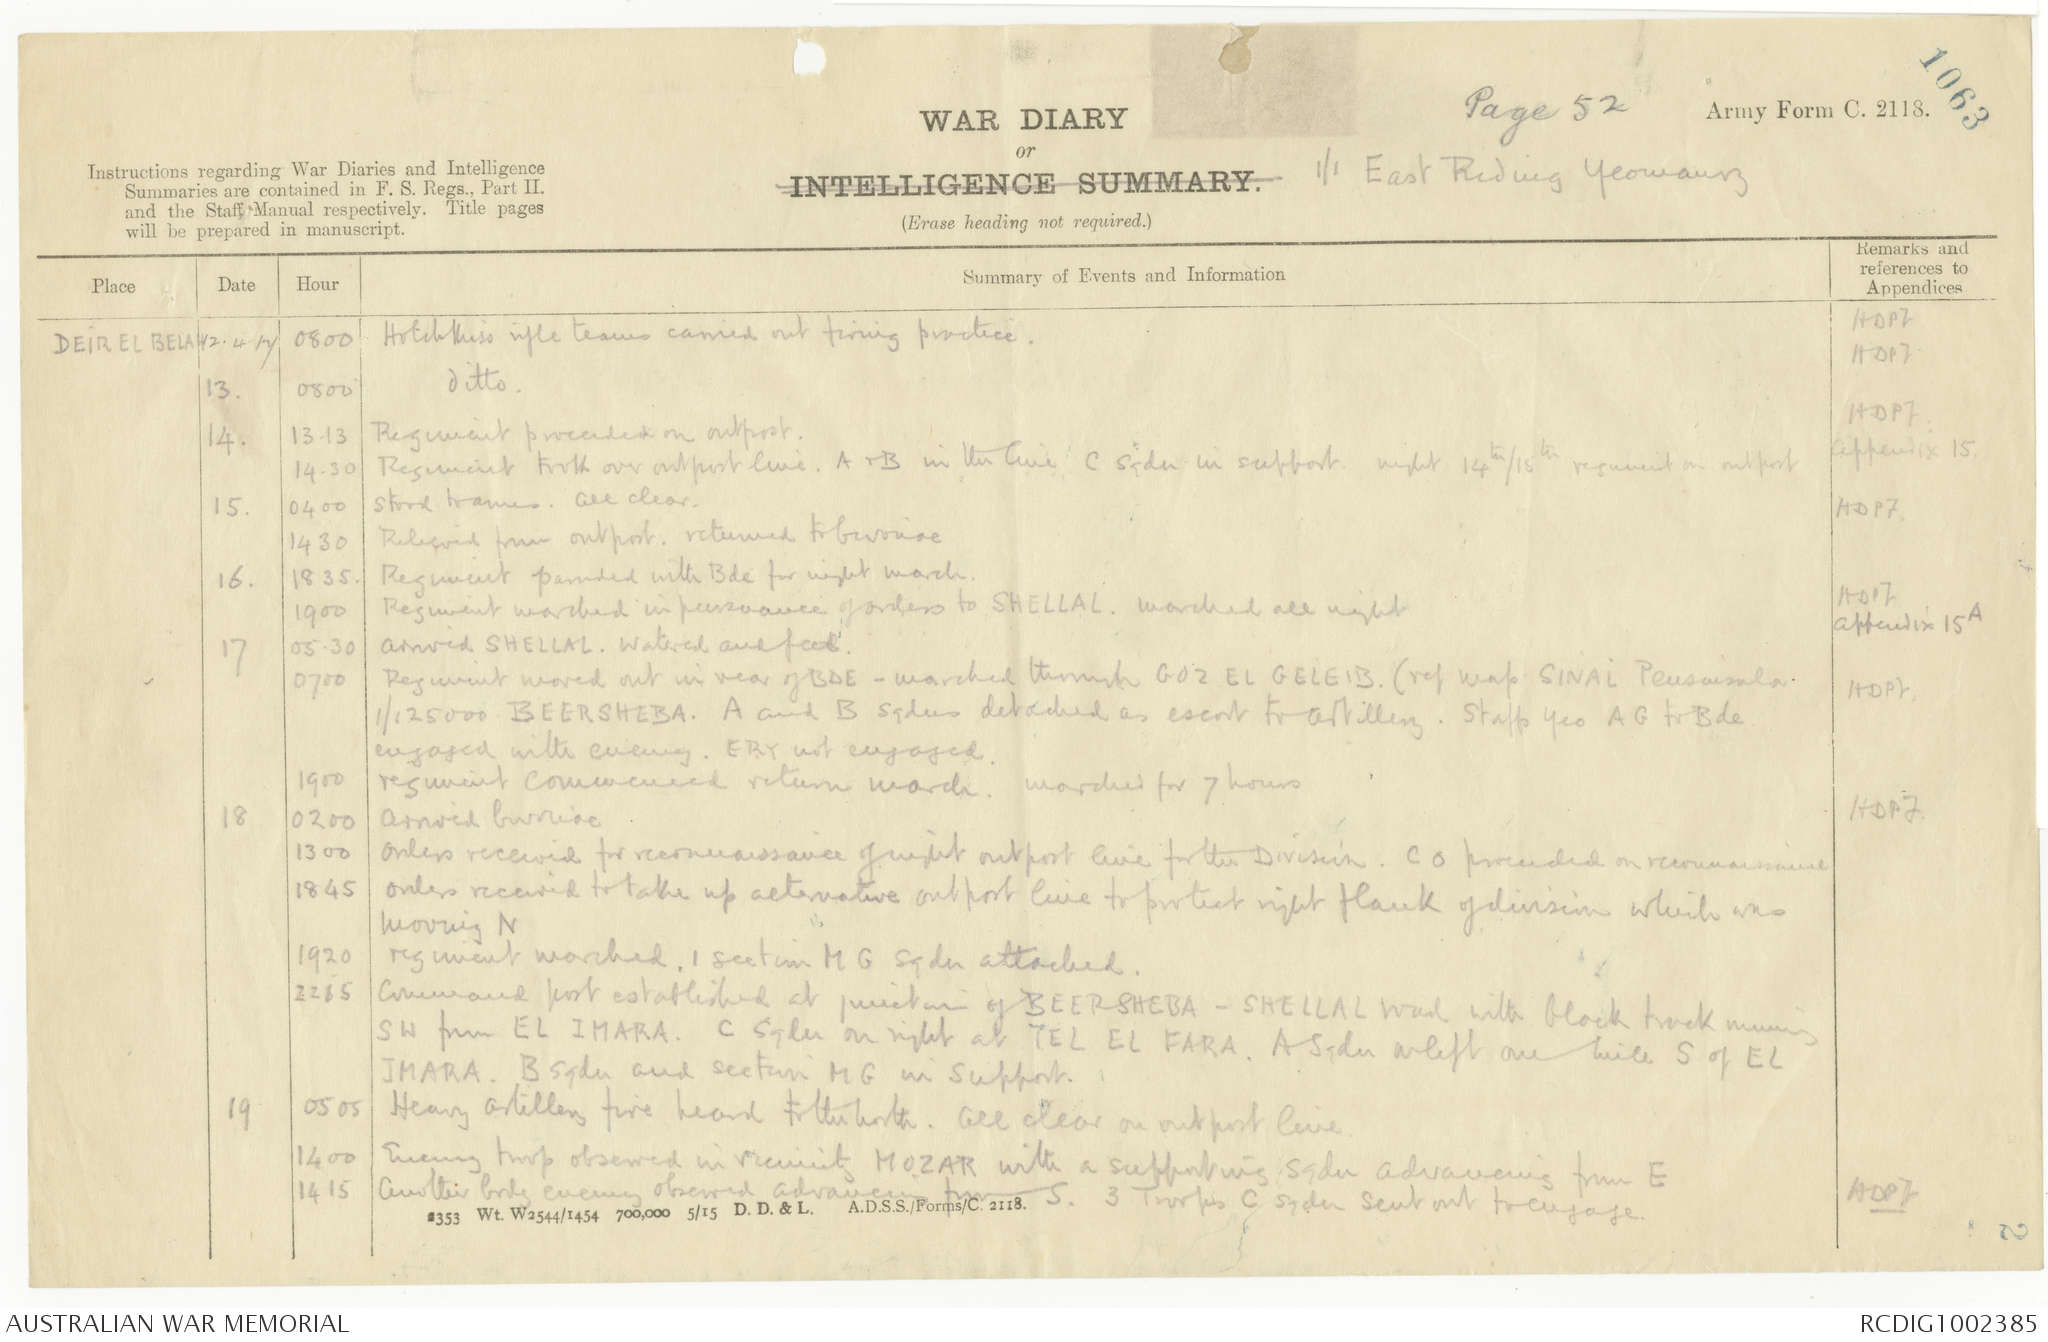 1063
Page 52
Army Form C. 2118.
WAR DIARY
or
INTELLIGENCE SUMMARY.
(Erase heading not required.)
1/1 East Riding Yeomanry
Instructions regarding War Diaries and Intelligence
Summaries are contained in F. S. Regs., Part II.
and the Staff Manual respectively. Title pages
will be prepared in manuscript.
Place Date Hour Summary of Events and Information Remarks and references to Appendices
DEIR EL BELAH 12.4.17 0800 Hotchkiss rifle teams carried out firing practice. HDPF
HDPF
13. 0800 ditto.
HDPF
14. 13.13 Regiment proceeded on outpost.
14.30 Regiment took over outpost line. A & B in the line C Sqdn in support. night 14th/15th regiment on outpost Appendix 15.
15. 0400 Stood to arms. all clear. HDPF
1430 Relieved from outpost. returned to bivouac
16. 1835. Regiment paraded with Bde for night march.
1900 Regiment marched in pursuance of orders to SHELLAL. marched all night HDPF
appendix 15A
17 05.30 arrived SHELLAL. Watered and feed.
0700 Regiment moved out in rear of BDE - marched through GOZ EL GELEIB. (ref map SINAI Peninsula HDPF.
1/125000 BEERSHEBA. A and B Sqdns detached as escort to artillery. Staffs Yeo A G to Bde
engaged with enemy. ERY not engaged.
1900 regiment commenced return march. marched for 7 hours
18 0200 arrived bivouac HDPF.
1300 orders received for reconnaissance of night outpost line for the Division. C O proceeded on reconnaissance
1845 orders received to take up alternative outpost line to protect right flank of division which was
moving N
1920 regiment marched, 1 section M G Sqdn attached.
2215 Command post established at junction of BEERSHEBA - SHELLAL road with black track running
SW from EL IMARA. C Sqdn on right at TEL EL FARA. A Sqdn on left one mile S of EL
IMARA. B Sqdn and section M G in support.
19 0505 Heavy artillery fire heard to the north. all clear on outpost line
1400 Enemy troop observed in vicinity MOZAR with a supporting Sqdn advancing from E
1415 Another body enemy observed advancing from S. 3 Troops C Sqdn sent out to engage. HDPF
2353 Wt. W2544/1454 700,000 5/15 D. D. & L. A.D.S.S./Forms/C. 2118.
AUSTRALIAN WAR MEMORIAL
RCDIG1002385